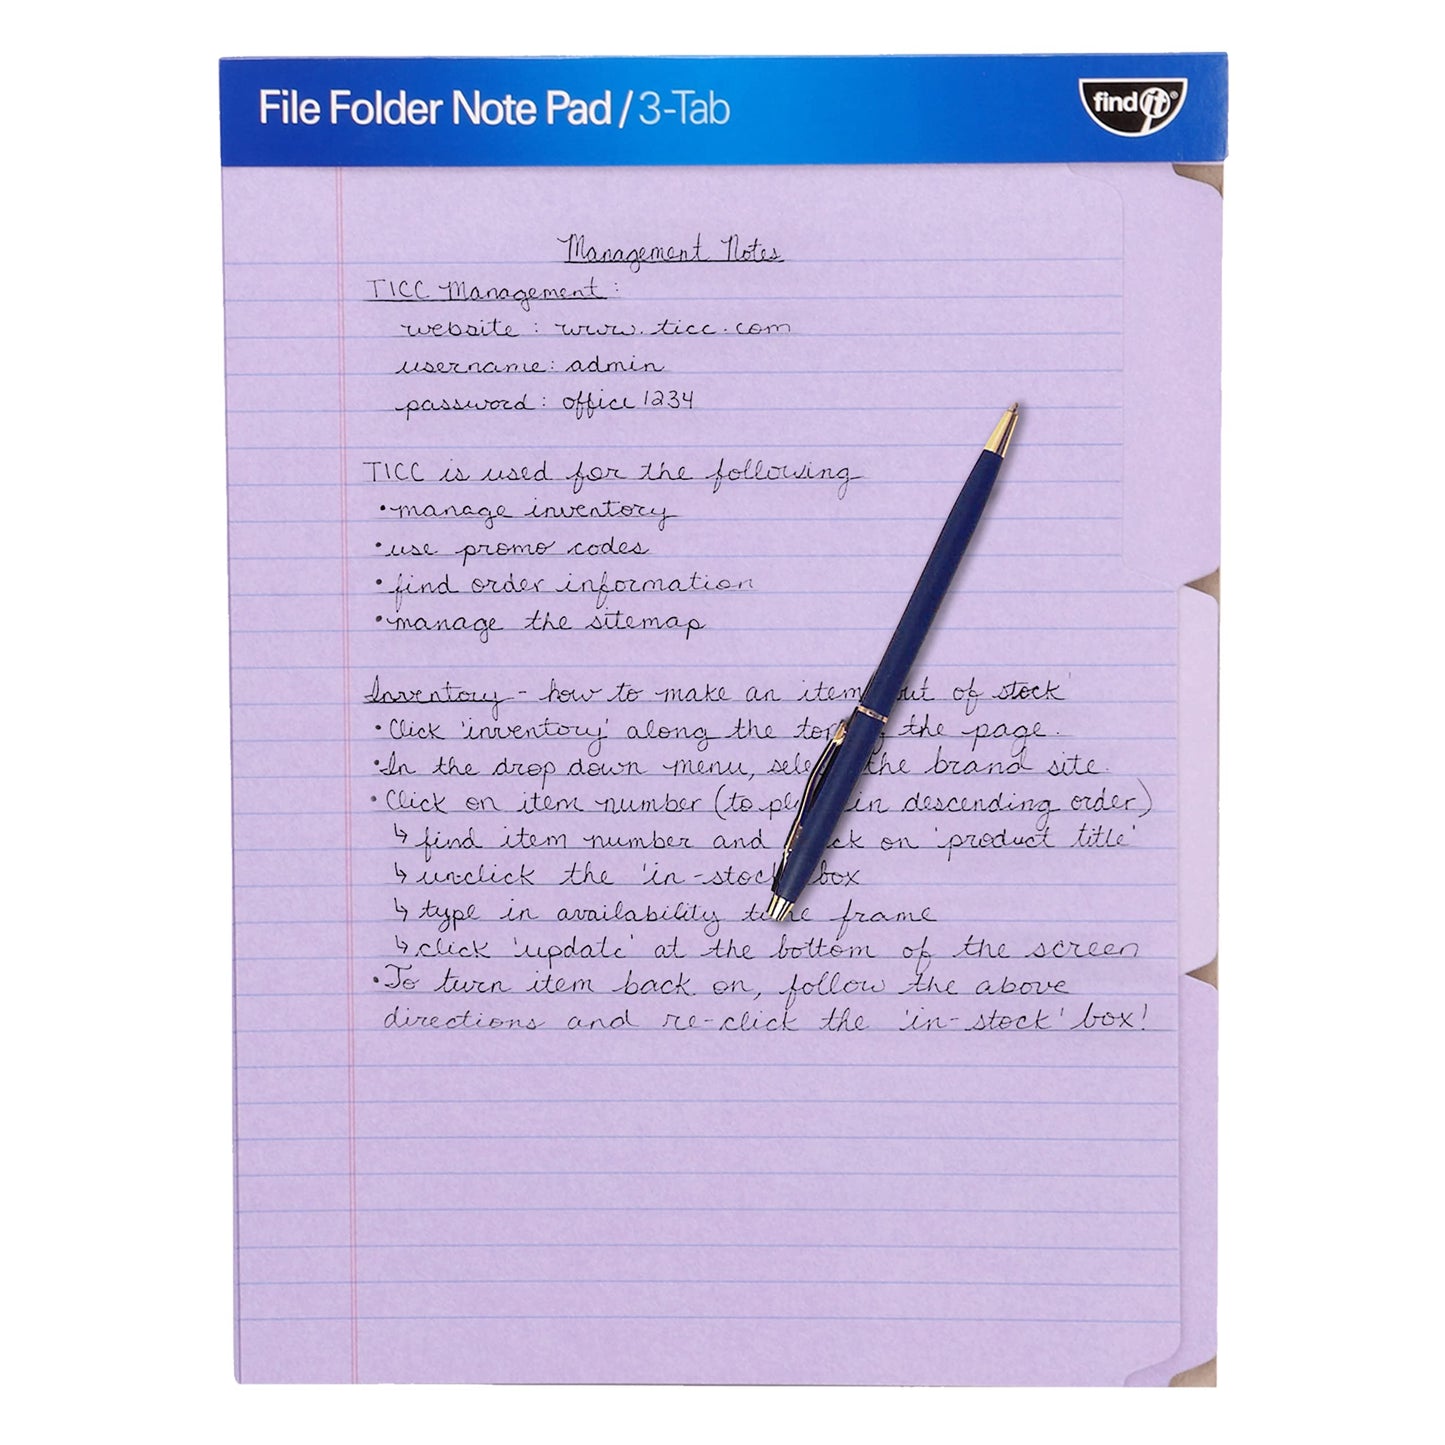 File Folder Note Pad / 3-Tab
find it®
Management Notes
TICC Management:
website: www.ticc.com
username: admin
password: office1234
TICC is used for the following
•manage inventory
•use promo codes
•find order information
•manage the sitemap
Inventory - how to make an item out of stock
•Click 'inventory' along the top of the page.
•In the drop down menu, select the brand site.
•Click on item number (to in descending order)
↳ find item number and click on 'product title'
↳ unclick the 'in-stock' box
↳ type in availability time frame
↳ click 'update' at the bottom of the screen
•To turn item back on, follow the above
directions and re-click the 'in-stock' box!